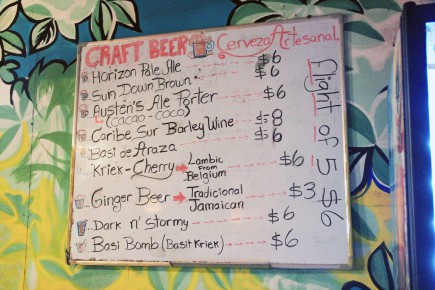 CRAFT BEER Cerveza Artesanal.
Horizon Pale Ale $6
Sun Down Brown $6
Austen's Ale Porter $6
(CACAO-COCO)
Caribe Sur Barley Wine $8
Basi de Araza $6
Kriek-Cherry → Lambic From Belgium $6
Ginger Beer → Tradicional Jamaican $3
Dark n' Stormy $6
Basi Bomb (Basi + Kriek) $6
Flight of 5 $6